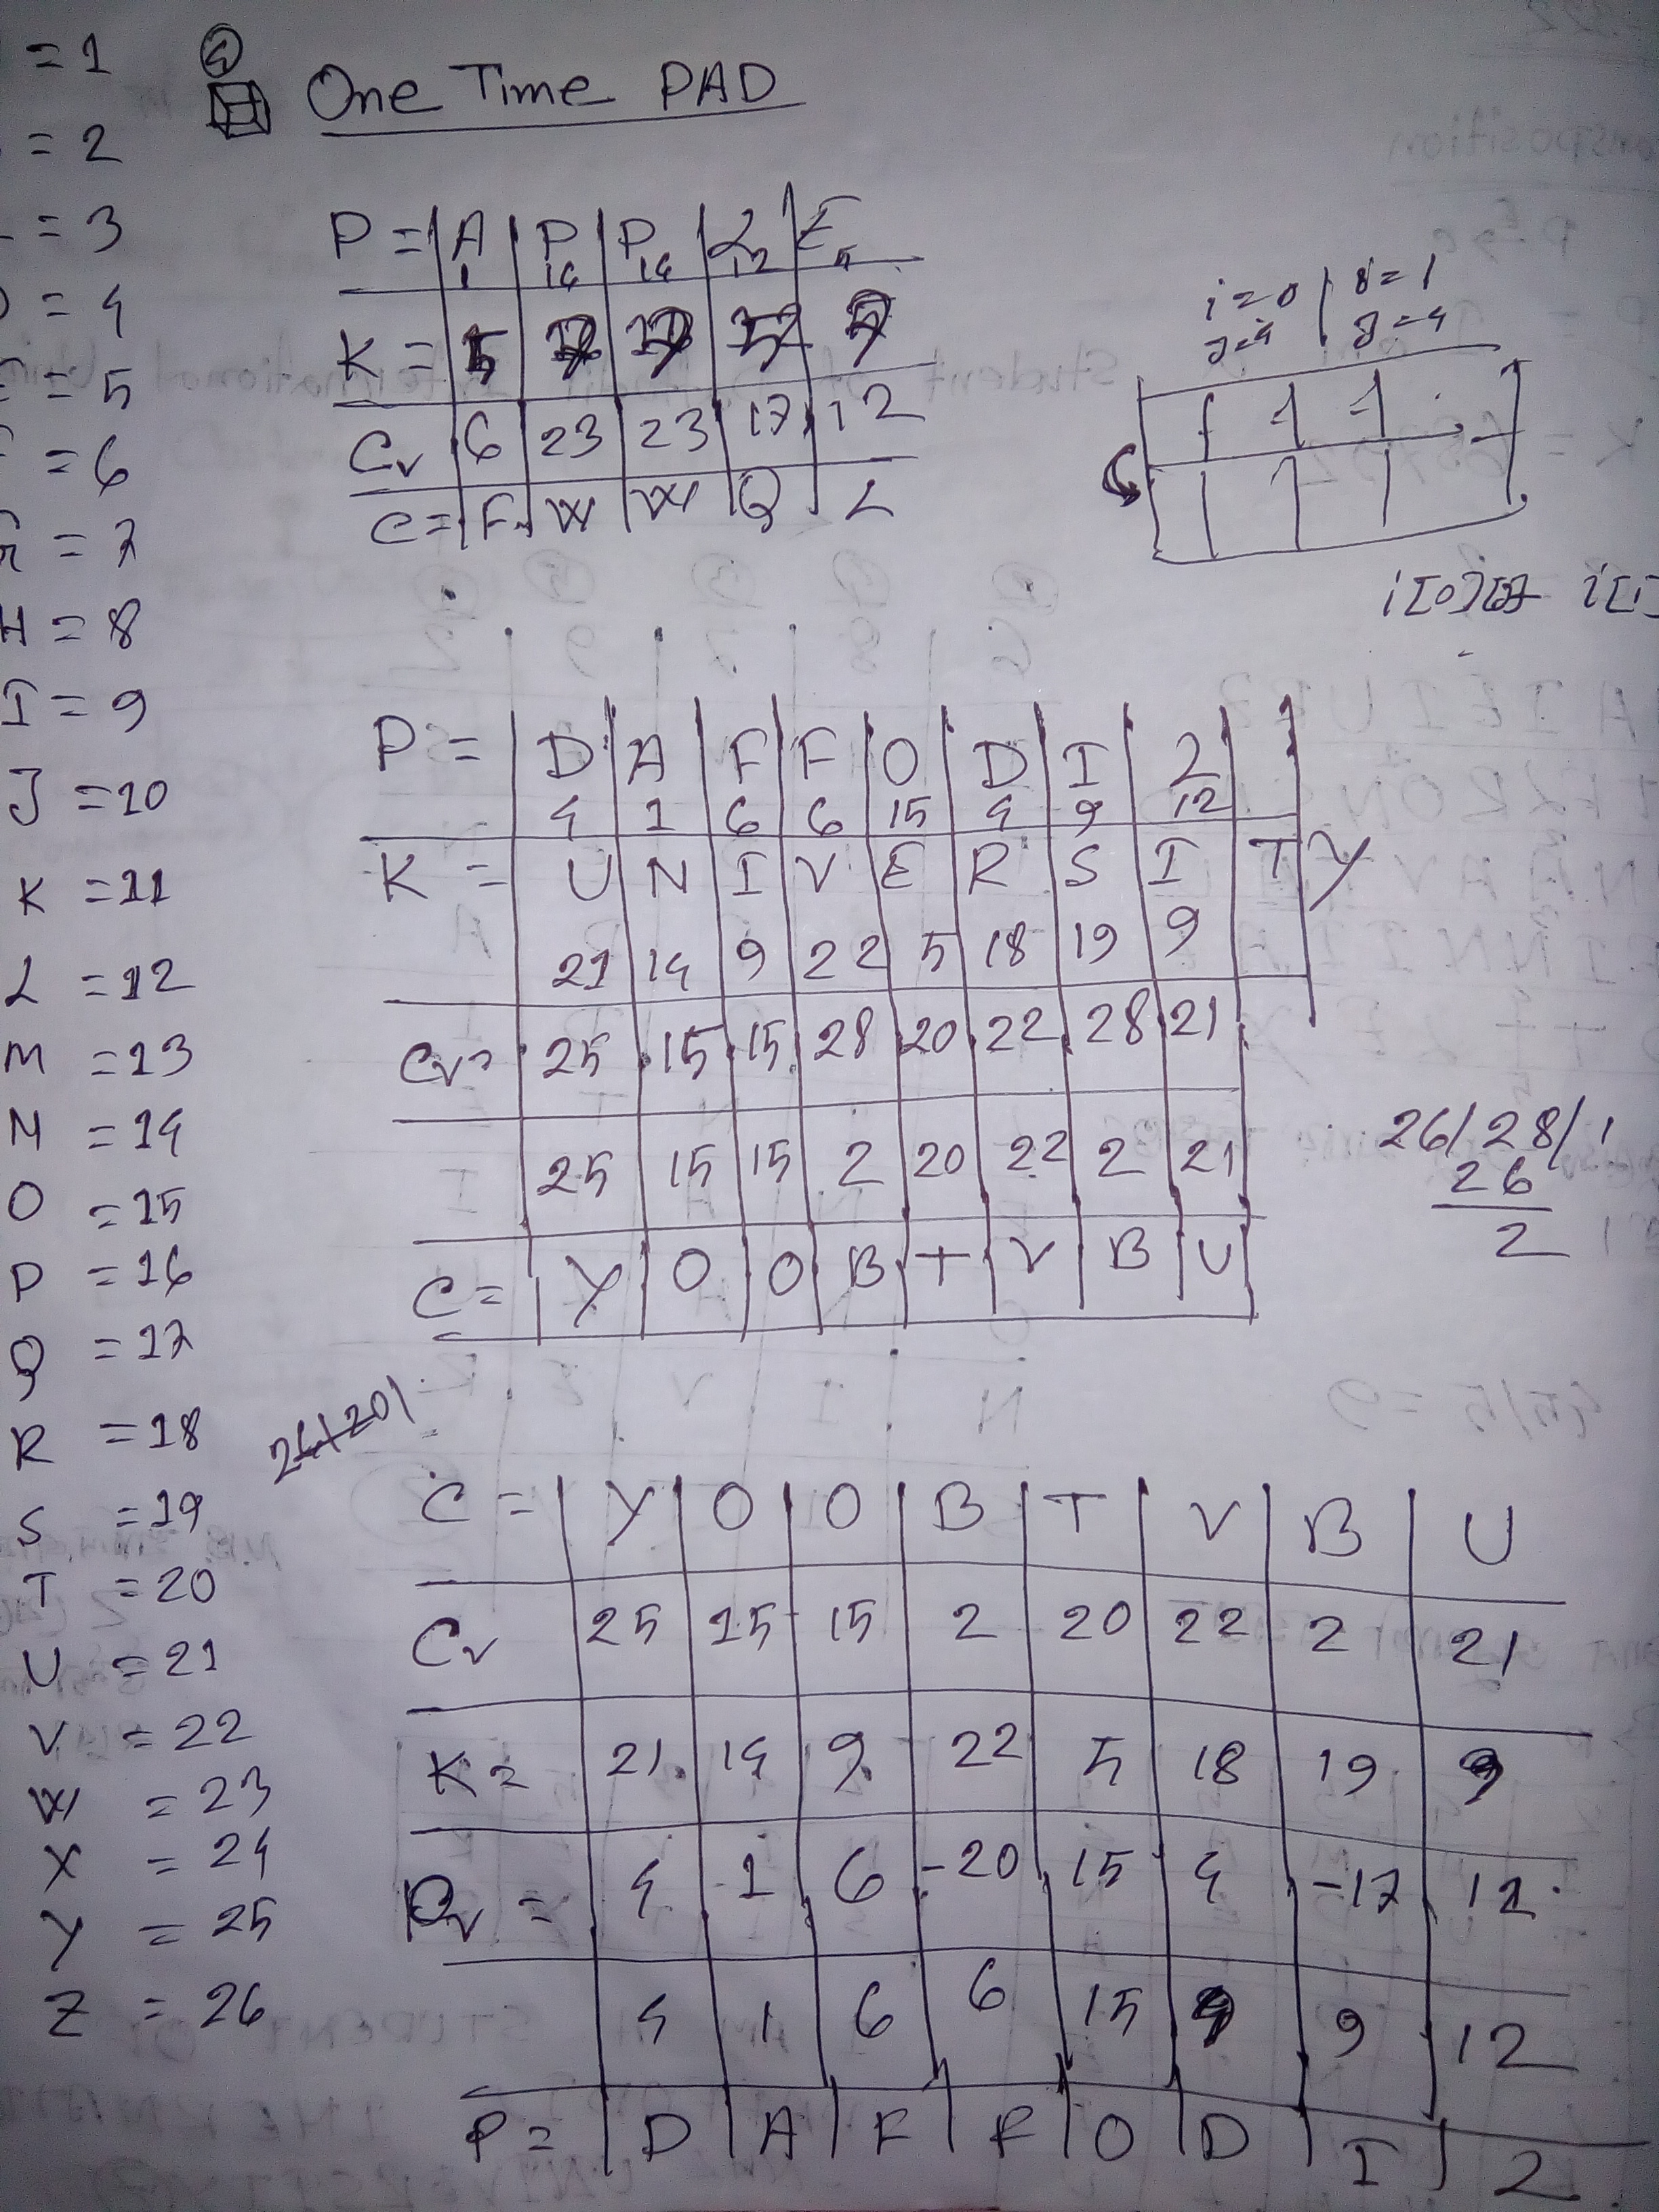 = 1
= 2
= 3
= 4
= 5
= 6
= 7
H = 8
I = 9
J = 10
K = 11
L = 12
M = 13
N = 14
O = 15
P = 16
Q = 17
R = 18
S = 19
T = 20
U = 21
V = 22
W = 23
X = 24
Y = 25
Z = 26
4
One Time PAD
P = | A | P | P | L | E
1 16 16 12 5
K =
Cv | 6 | 23 | 23 | 17 | 12
C = | F | W | W | Q | L
i=0 | 8=1
J=4 | J=4
P = | D | A | F | F | O | D | I | L
4 1 6 6 15 4 9 12
K = U | N | I | V | E | R | S | I | T | Y
21 14 9 22 5 18 19 9
Cv = 25 | 15 | 15 | 28 | 20 | 22 | 28 | 21
25 | 15 | 15 | 2 | 20 | 22 | 2 | 21
C = | Y | O | O | B | T | V | B | U
26/28/1
26
2
C = | Y | O | O | B | T | V | B | U
Cv 25 | 15 | 15 | 2 | 20 | 22 | 2 | 21
K = 21 | 14 | 9 | 22 | 5 | 18 | 19 | 9
Pv = 4 | 1 | 6 | -20 | 15 | 4 | -17 | 12
4 | 1 | 6 | 6 | 15 | 4 | 9 | 12
P = | D | A | F | F | O | D | I | L